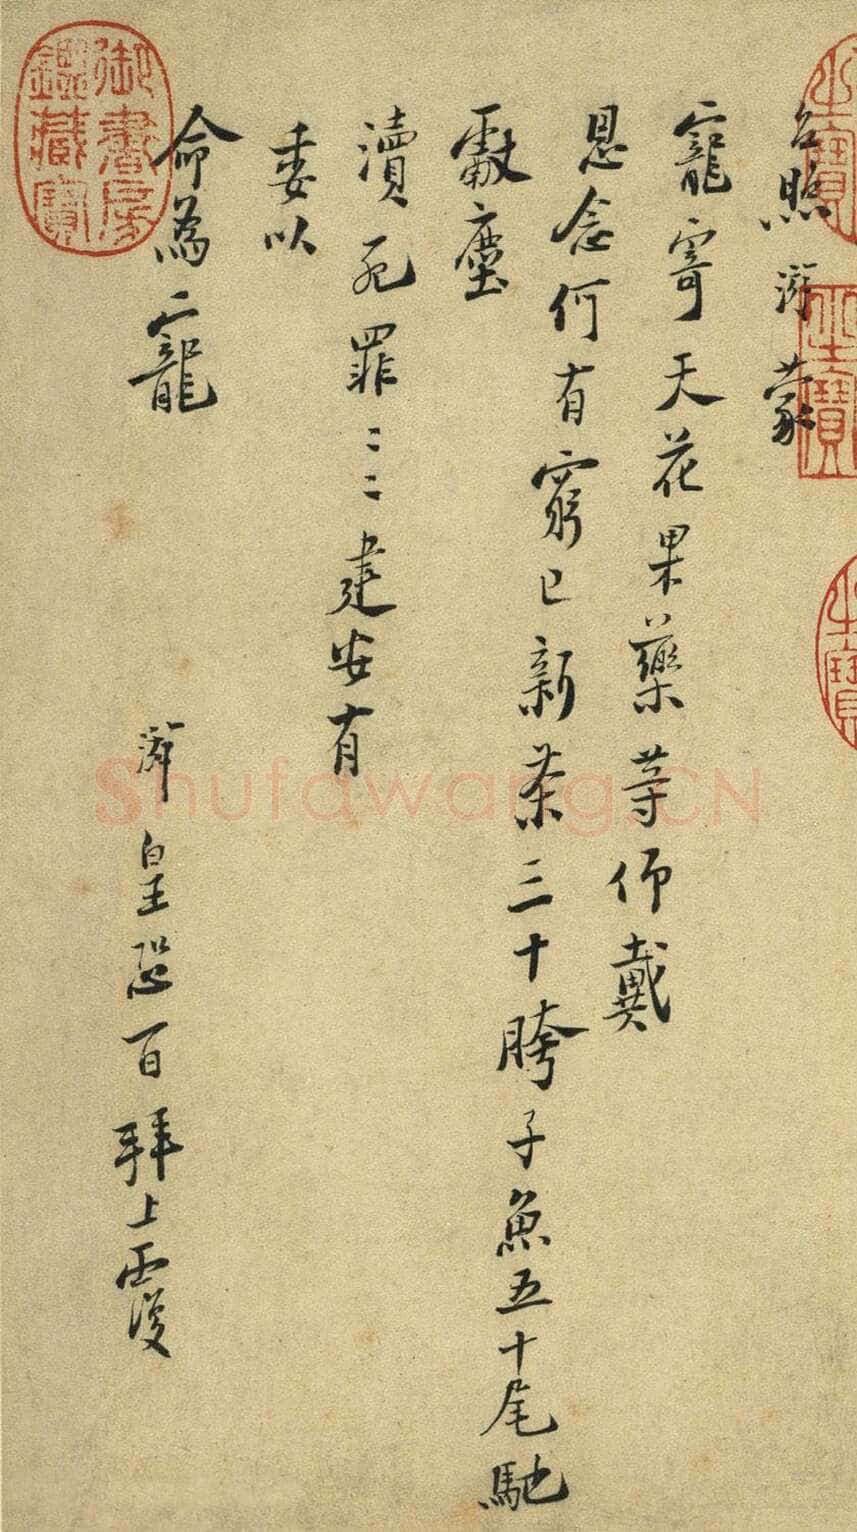 台照游蒙
寵寄天花果藥等仰戴
恩念何有窮已新茶三十胯子魚五十尾馳
獻塵
瀆死罪〻〻建安有
委以
命為寵
游皇恐百拜上覆
御書房鑑藏寶
shufawang.CN